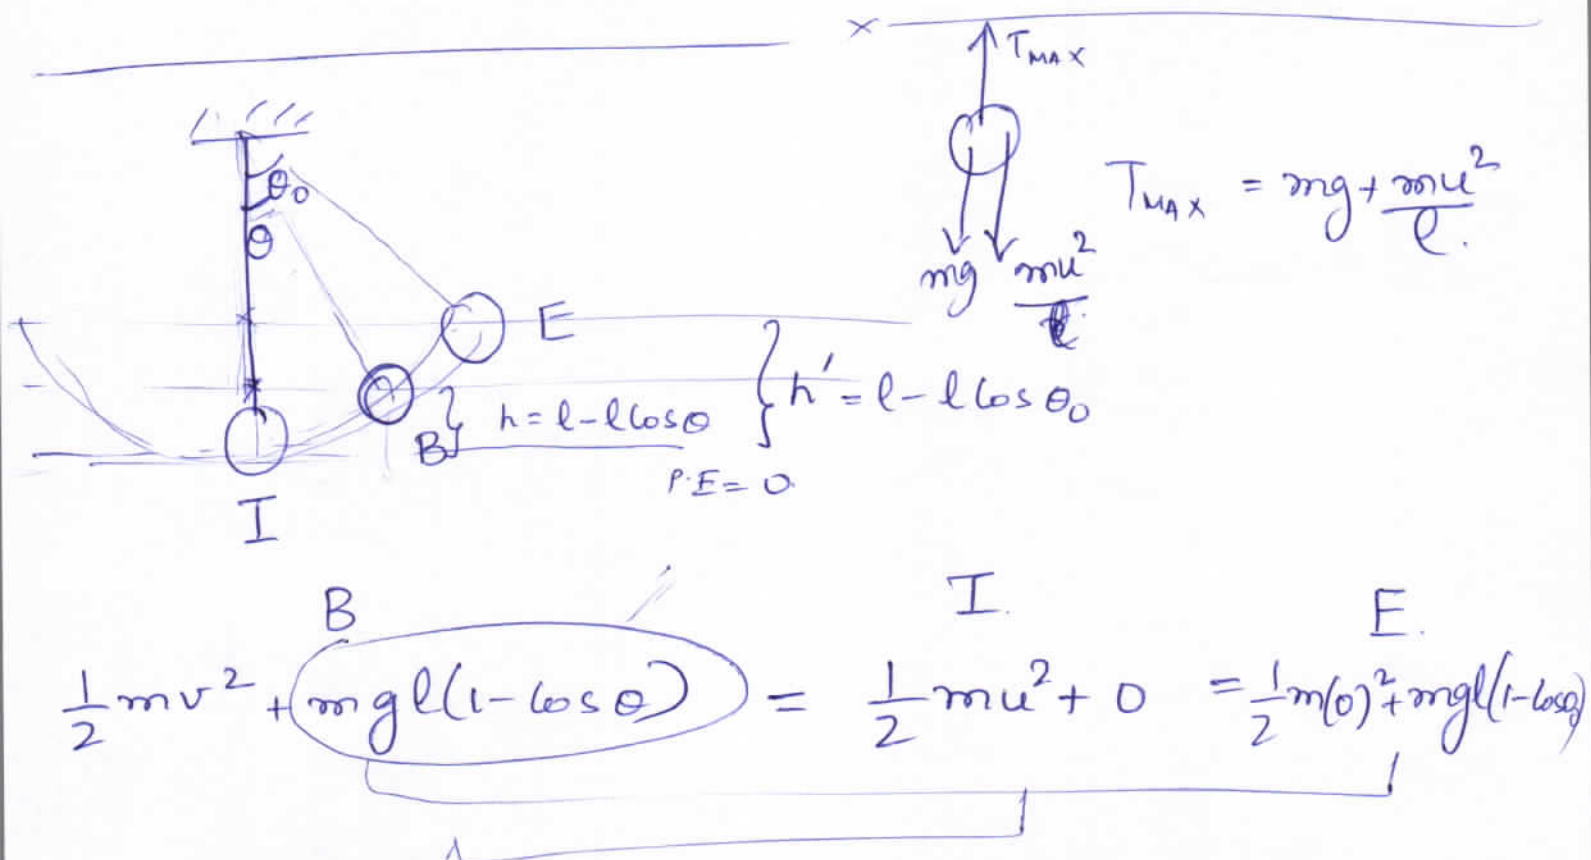 ×
T_MAX
mg mu²/l
T_MAX = mg + mu²/l.
θ₀
θ
E
B
h = l - l cos θ
h' = l - l cos θ₀
P.E = 0.
I
B I. E.
1/2 mv² + mgl(1 - cos θ) = 1/2 mu² + 0 = 1/2 m(0)² + mgl(1 - cos θ₀)